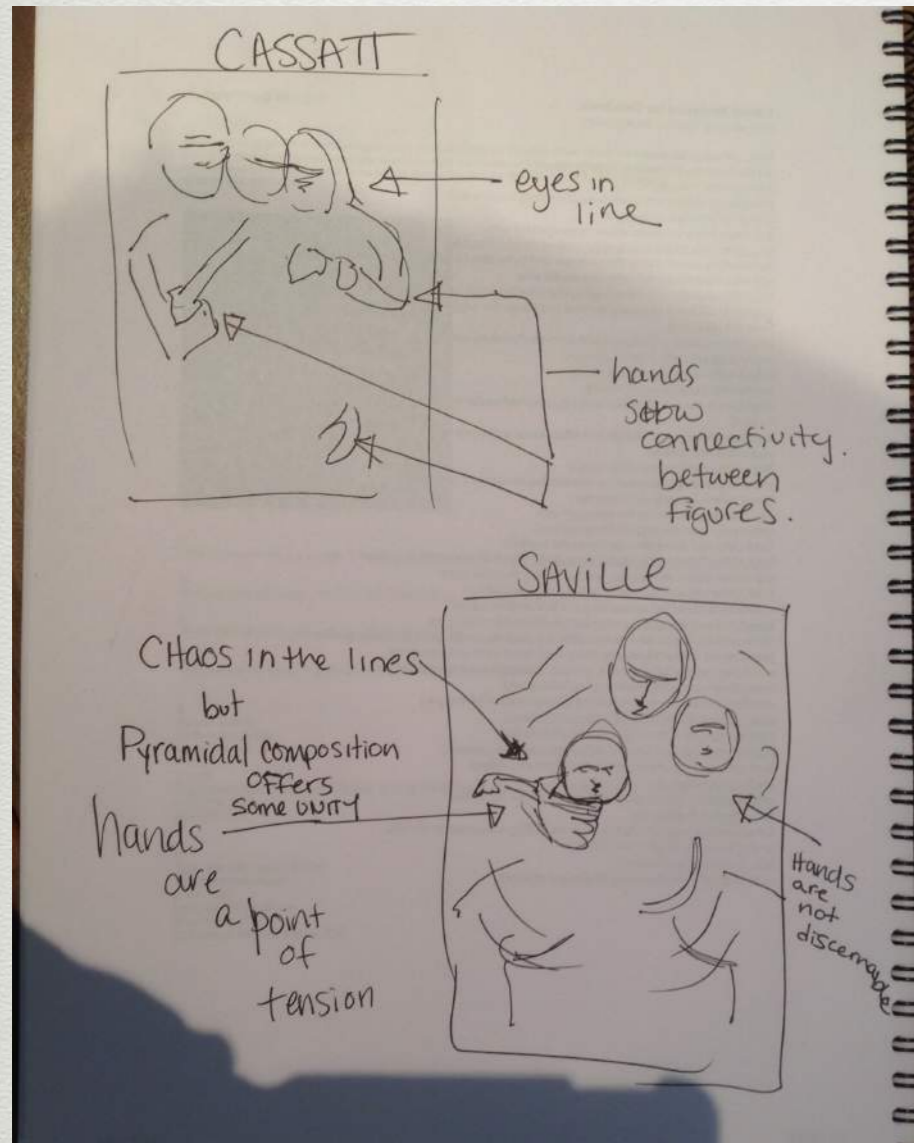 CASSATT
eyes in
line
hands
show
connectivity.
between
figures.
SAVILLE
CHaos in the lines
but
Pyramidal composition
OFFers
some UNITY
hands
are
a point
of
tension
Hands
are
not
discernable